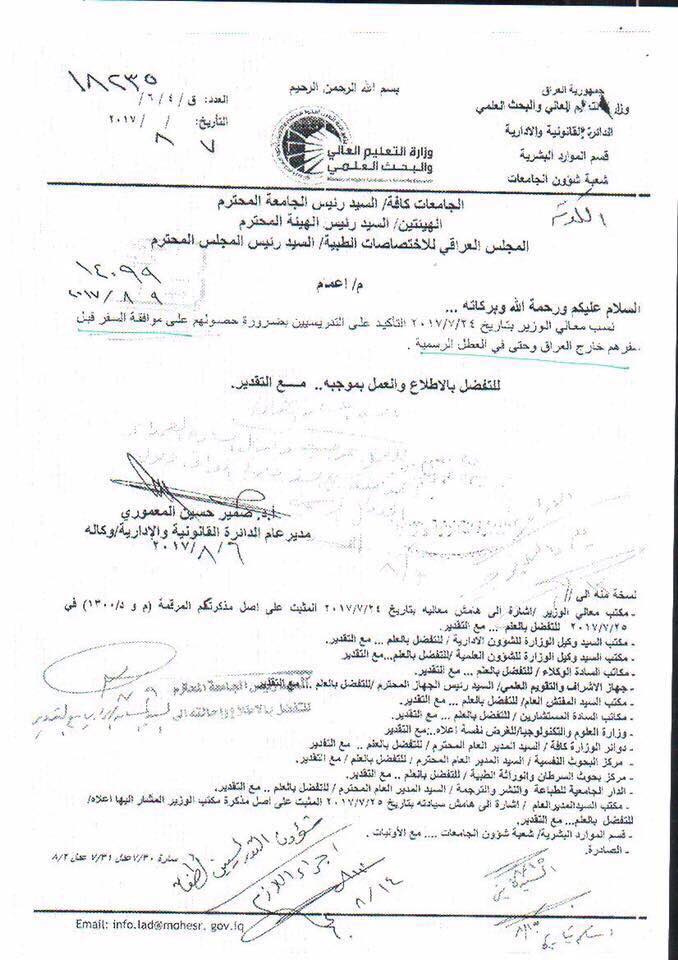 بسم الله الرحمن الرحيم
جمهورية العراق
وزارة التعليم العالي والبحث العلمي
الدائرة القانونية والادارية
قسم الموارد البشرية
شعبة شؤون الجامعات
١٨٢٣٥
العدد: ق/٤/٦/
التأريخ: / / ٢٠١٧
٧ ٨
وزارة التعليم العالي
والبحث العلمي
الجامعات كافة/ السيد رئيس الجامعة المحترم
الهيئتين/ السيد رئيس الهيئة المحترم
المجلس العراقي للاختصاصات الطبية/ السيد رئيس المجلس المحترم
١٤٠٩٩
٢٠١٧/٨/٩
م/ إعمام
السلام عليكم ورحمة الله وبركاته ...
نسب معالي الوزير بتاريخ ٢٠١٧/٧/٢٤ التأكيد على التدريسيين بضرورة حصولهم على موافقة السفر قبل
سفرهم خارج العراق وحتى في العطل الرسمية .
للتفضل بالاطلاع والعمل بموجبه.. مـــع التقدير.
أ.د. ضمير حسين المعموري
مدير عام الدائرة القانونية والإدارية/وكاله
٢٠١٧/٨/٦
نسخة منه الى //
- مكتب معالي الوزير /اشارة الى هامش معاليه بتاريخ ٢٠١٧/٧/٢٤ المثبت على اصل مذكرتكم المرقمة (م و د/١٣٠٠) في
٢٠١٧/٧/٢٥ للتفضل بالعلم ... مع التقدير.
- مكتب السيد وكيل الوزارة للشؤون الادارية / للتفضل بالعلم ... مع التقدير.
- مكتب السيد وكيل الوزارة للشؤون العلمية /للتفضل بالعلم...مع التقدير
- مكاتب السادة الوكلاء / للتفضل بالعلم ... مع التقدير.
- جهاز الاشراف والتقويم العلمي/ السيد رئيس الجهاز المحترم /للتفضل بالعلم ... مع التقدير
- مكتب السيد المفتش العام/ للتفضل بالعلم ... مع التقدير.
- مكاتب السادة المستشارين / للتفضل بالعلم ... مع التقدير.
- وزارة العلوم والتكنولوجيا/للغرض نفسة اعلاه..مع التقدير
- دوائر الوزارة كافة / السيد المدير العام المحترم / للتفضل بالعلم .. مع التقدير
- مركز البحوث النفسية / السيد المدير العام المحترم / للتفضل بالعلم / مع التقدير.
- مركز بحوث السرطان والوراثة الطبية / للتفضل بالعلم .. مع التقدير.
- الدار الجامعية للطباعة والنشر والترجمة / السيد المدير العام المحترم / للتفضل بالعلم .. مع التقدير
- مكتب السيدالمديرالعام / اشارة الى هامش سيادته بتاريخ ٢٠١٧/٧/٢٥ المثبت على اصل مذكرة مكتب الوزير المشار اليها اعلاه/
للتفضل بالعلم...مع التقدير.
- قسم الموارد البشرية/ شعبة شؤون الجامعات .... مع الأوليات .
- الصادرة.
سارة ٧/٣٠ عدل ٧/٣١ عدل ٨/٢
اجراء اللازم
٨/١٤
Email: info.lad@mohesr. gov.iq